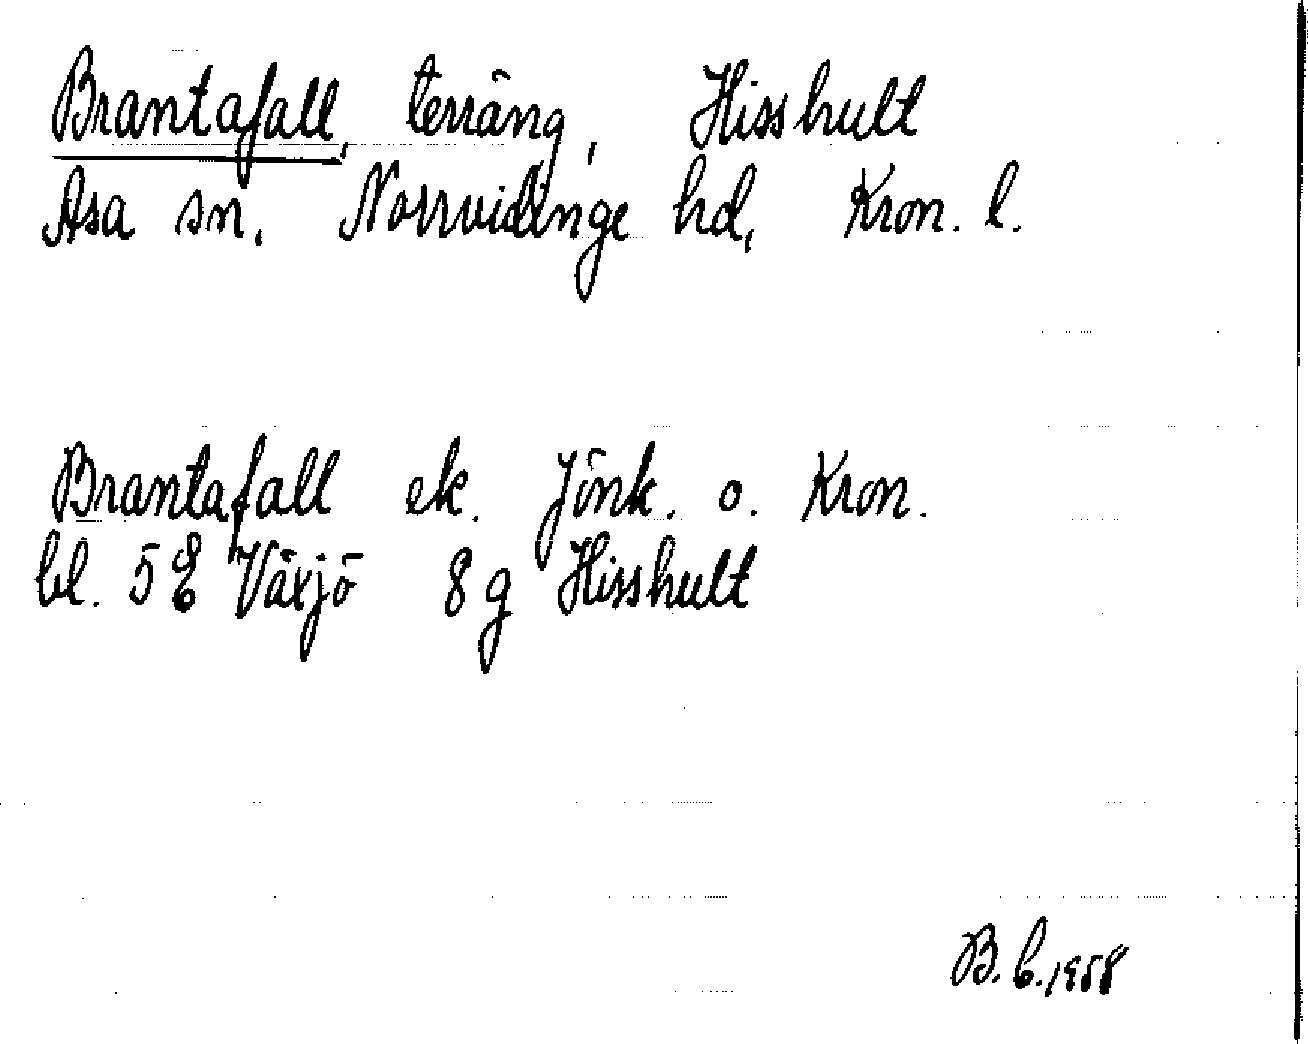 Brantafall, terräng, Hisshult
Asa sn. Norrvidinge hd, Kron. l.
Brantafall ek. Jönk. o. Kron.
bl. 5E Växjö 8g Hisshult
B.b. 1958